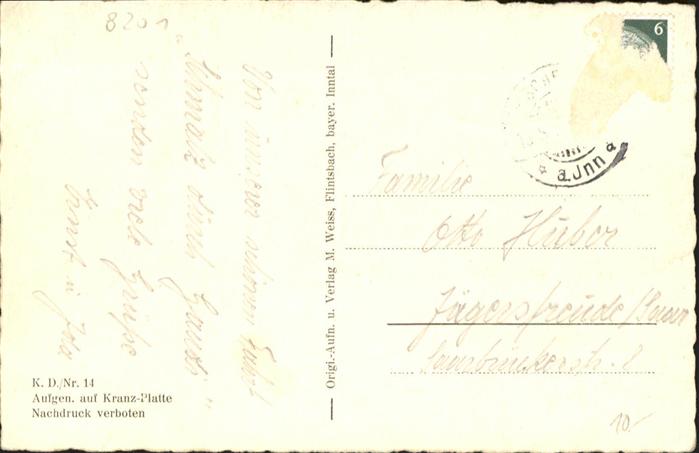 8201
Von unserer schönen Fahrt
"Schmalz durch Gaudi"
senden viele Grüße
Ernst u.
K. D./Nr. 14
Aufgen. auf Kranz-Platte
Nachdruck verboten
Origi.-Aufn. u. Verlag M. Weiss, Flintsbach, bayer. Inntal
6
a. Jnn
Familie
Otto Huber
Jägersfreude/Saar
Saarbrückerstr. 2
10.-